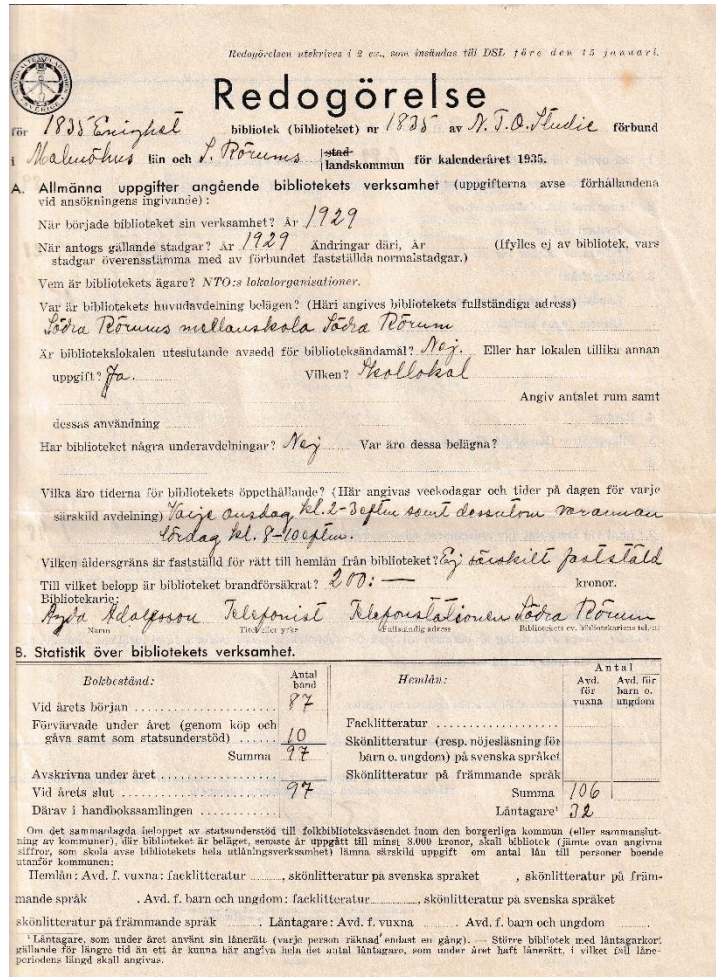 Redogörelsen utskrives i 2 ex., som insändas till DSL före den 15 januari.
Redogörelse
för 1835 Enighet bibliotek (biblioteket) nr 1835 av N.T.O. Studie förbund
i Malmöhus län och S. Rörums stad landskommun för kalenderåret 1935.
A. Allmänna uppgifter angående bibliotekets verksamhet (uppgifterna avse förhållandena
vid ansökningens ingivande):
När började biblioteket sin verksamhet? År 1929
När antogs gällande stadgar? År 1929 Ändringar däri, År (Ifylles ej av bibliotek, vars
stadgar överensstämma med av förbundet fastställda normalstadgar.)
Vem är bibliotekets ägare? NTO:s lokalorganisationer.
Var är bibliotekets huvudavdelning belägen? (Häri angives bibliotekets fullständiga adress)
Södra Rörums mellanskola Södra Rörum
Är bibliotekslokalen uteslutande avsedd för biblioteksändamål? Nej. Eller har lokalen tillika annan
uppgift? Ja. Vilken? Skollokal
Angiv antalet rum samt
dessas användning
Har biblioteket några underavdelningar? Nej Var äro dessa belägna?
Vilka äro tiderna för bibliotekets öppethållande? (Här angivas veckodagar och tider på dagen för varje
särskild avdelning) Varje onsdag kl. 2-3 eftm samt dessutom varannan
lördag kl. 8-10 eftm.
Vilken åldersgräns är fastställd för rätt till hemlån från biblioteket? Ej särskilt fastställd
Till vilket belopp är biblioteket brandförsäkrat? 200:— kronor.
Bibliotekarie:
Adolfsson Telefonist Telefonstationen Södra Rörum
Namn Titel eller yrke Fullständig adress Bibliotekets ev. bibliotekariens tel.-nr
B. Statistik över bibliotekets verksamhet.
Bokbestånd: Antal band
Vid årets början 87
Förvärvade under året (genom köp och
gåva samt som statsunderstöd) 10
Summa 97
Avskrivna under året
Vid årets slut 97
Därav i handbokssamlingen
Hemlån: Antal
Avd. för vuxna Avd. för barn o. ungdom
Facklitteratur
Skönlitteratur (resp. nöjesläsning för
barn o. ungdom) på svenska språket
Skönlitteratur på främmande språk
Summa 106
Låntagare¹ 32
Om det sammanlagda beloppet av statsunderstöd till folkbiblioteksväsendet inom den borgerliga kommun (eller sammanslut-
ning av kommuner), där biblioteket är beläget, senaste år uppgått till minst 8.000 kronor, skall bibliotek (jämte ovan angivna
siffror, som skola avse bibliotekets hela utlåningsverksamhet) lämna särskild uppgift om antal lån till personer boende
utanför kommunen:
Hemlån: Avd. f. vuxna: facklitteratur , skönlitteratur på svenska språket , skönlitteratur på främ-
mande språk . Avd. f. barn och ungdom: facklitteratur , skönlitteratur på svenska språket
skönlitteratur på främmande språk . Låntagare: Avd. f. vuxna . Avd. f. barn och ungdom .
¹ Låntagare, som under året använt sin lånerätt (varje person räknad endast en gång). — Större bibliotek med låntagarkort
gällande för längre tid än ett år kunna här angiva hela det antal låntagare, som under året haft lånerätt, i vilket fall låne-
periodens längd skall angivas.